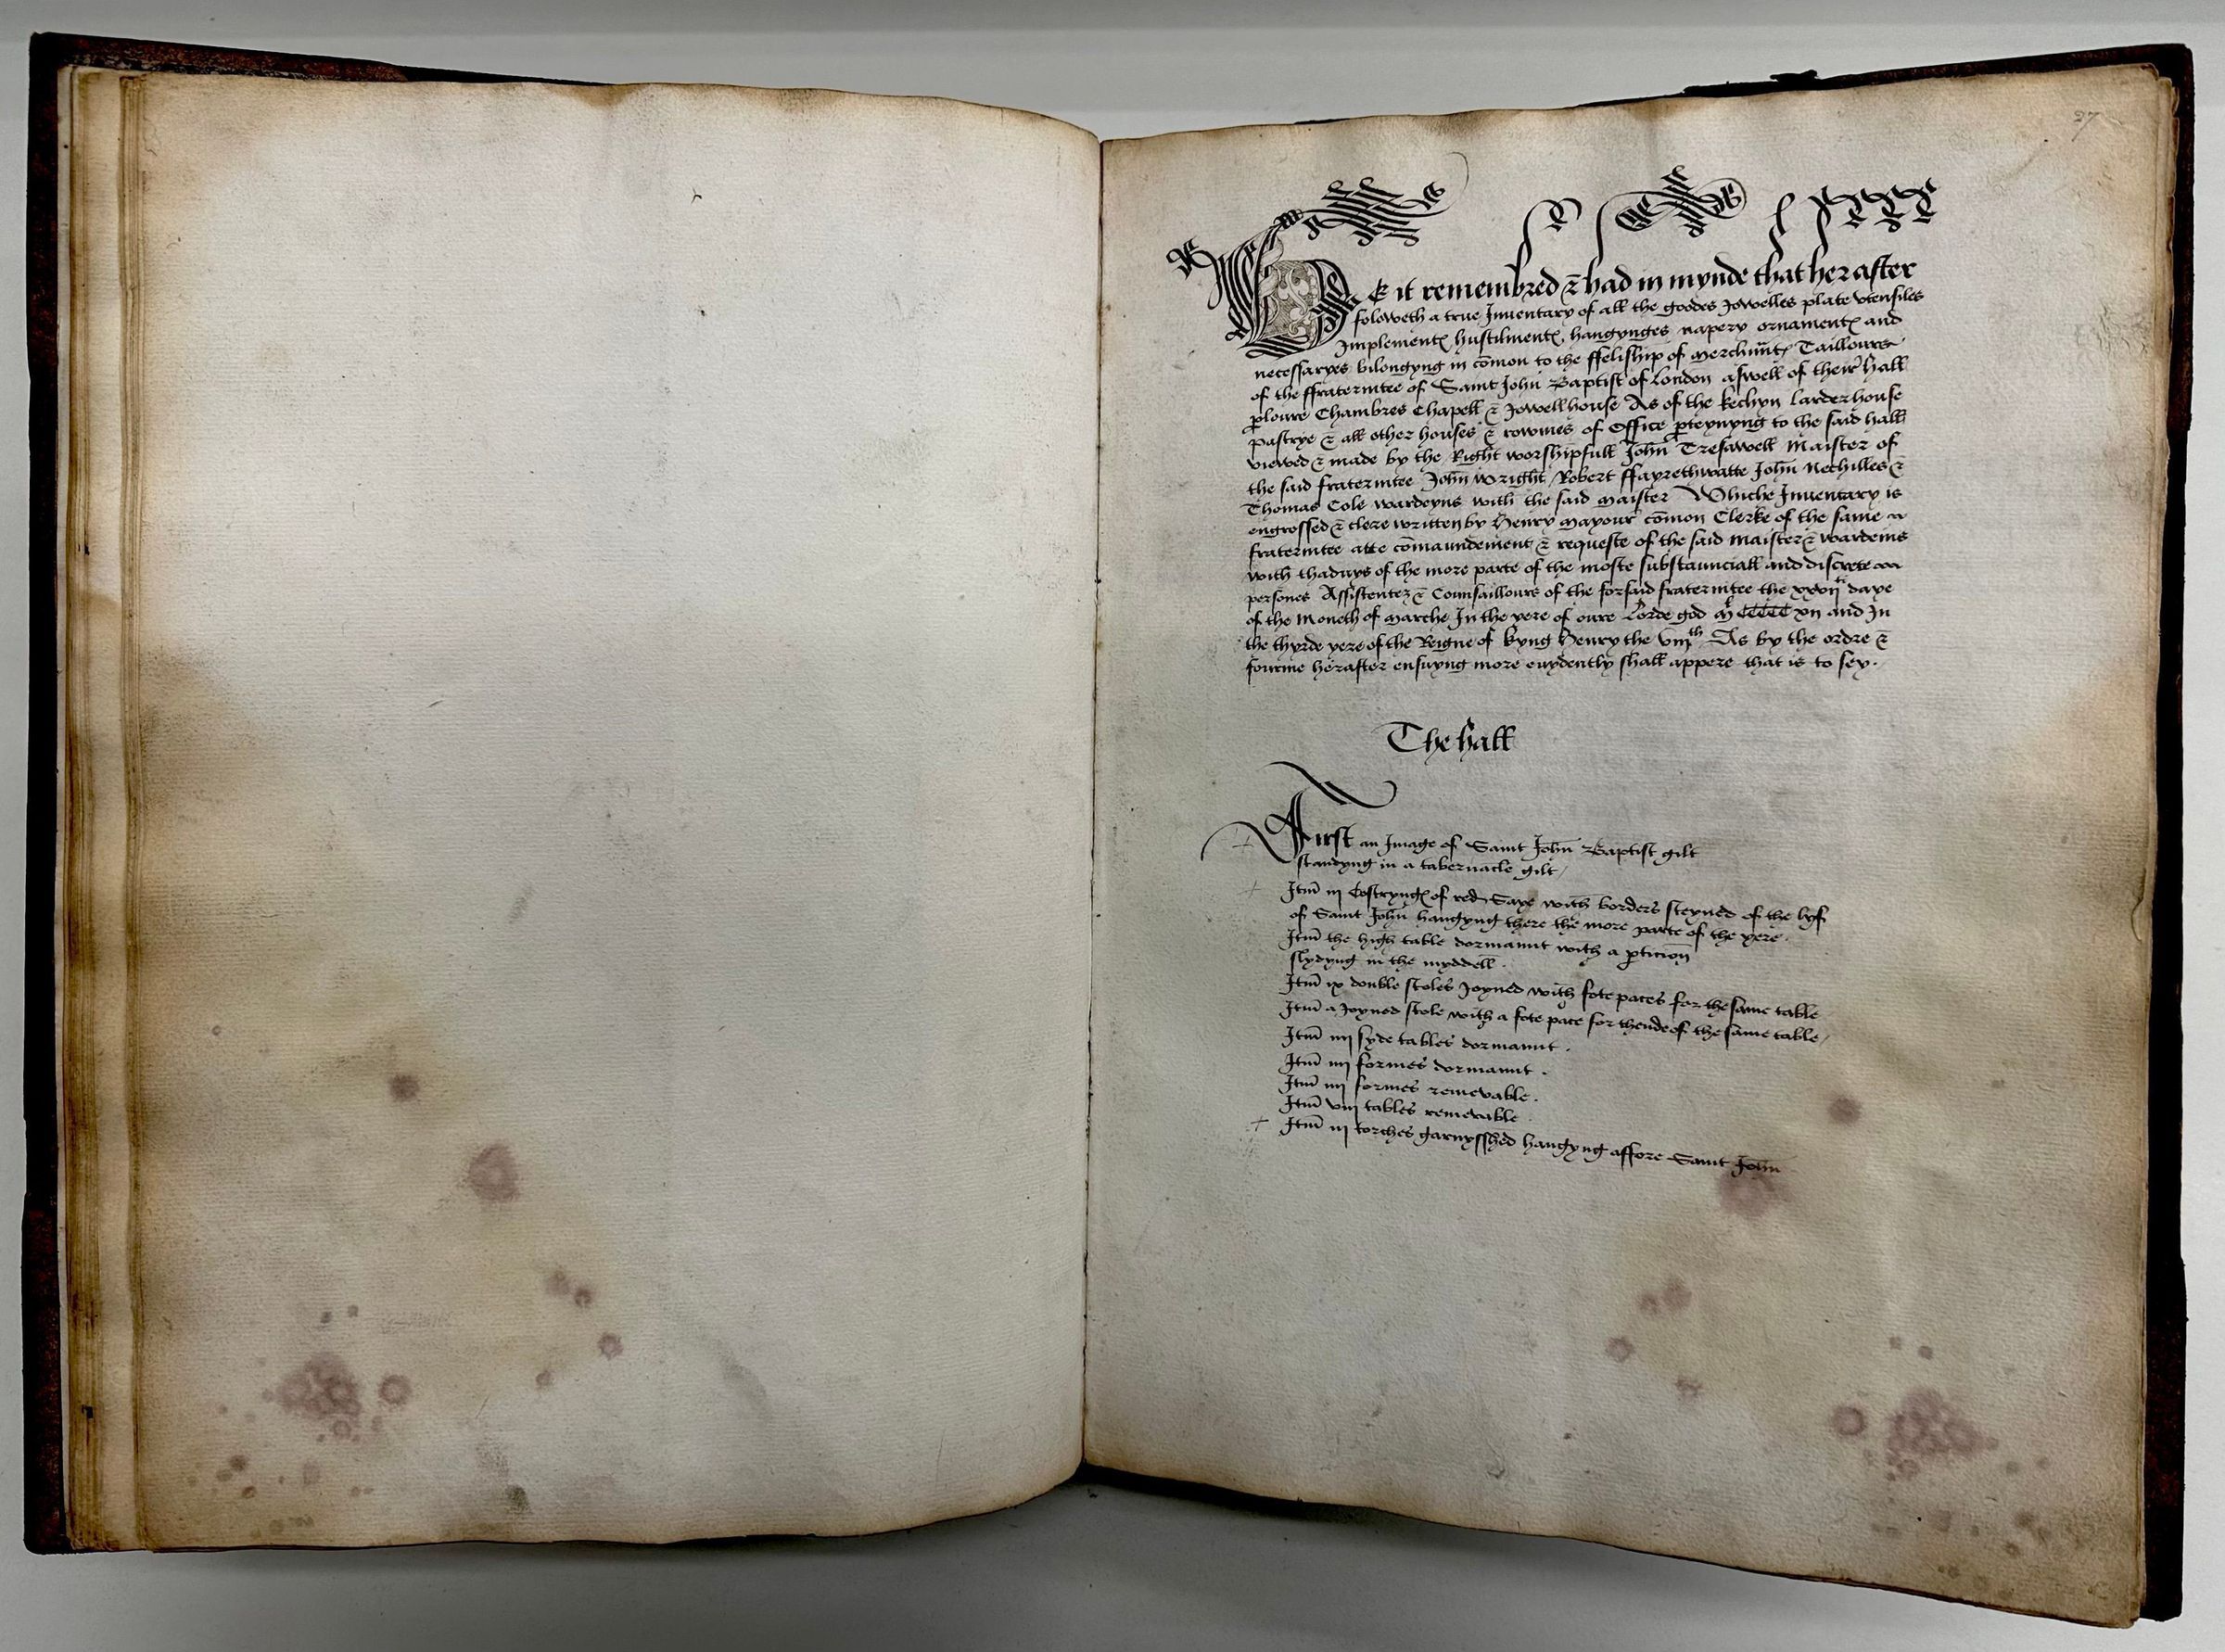 27
Be it remembred & had in mynde that her after
foloweth a true Inuentary of all the goodes Jowelles plate vtensiles
Implementꝭ hustilmentꝭ, hangynges napery ornamentꝭ and
necessaryes bilongyng in cōmon to the ffeliship of Merchūntꝭ Taillours
of the ffraternitee of Saint John Baptist of london aswell of their hall
ꝑloure Chambres Chapell & Jowellhouse As of the kechyn larderhouse
pastrye & all other houses & rowmes of Office ꝑteynyng to the said hall
viewed & made by the Right worshipfull John Tresawell Maister of
the said fraternitee John wright / Robert ffayrethwatte John Nechilles &
Thomas Cole wardeyns with the said Maister Whiche Inuentary is
engrossed & clere written by Henry Mayour cōmon Clerke of the same
fraternitee atte cōmaundement & requeste of the said Maister & wardeins
with thaduys of the more parte of the moste substaunciall and discrete
persones Assistentez & Counsaillours of the forsaid fraternitee the xxvijti daye
of the Moneth of Marche In the yere of oure Lorde god Ml CCCCC xij and In
the thyrde yere of the Reigne of kyng Henry the viijth As by the ordre &
fourme herafter ensuyng more euydently shall appere that is to sey.
The hall
+ First an Image of Saint John Baptist gilt
standyng in a tabernacle gilt /
+ Itm̄ iij Costryngꝭ of red Saye with borders steyned of the lyf
of Saint John hangyng there the more parte of the yere.
Itm̄ the high table dormaunt with a ꝑticion
slydyng in the myddell.
Itm̄ ix double stoles Joyned with fote paces for the same table
Itm̄ a Joyned stole with a fote pace for thende of the same table /
Itm̄ iiij syde tables dormaunt.
Itm̄ iiij formes dormaunt.
Itm̄ iiij formes remevable.
Itm̄ viij tables remevable.
+ Itm̄ iij torches garnysshed hangyng affore Saint John